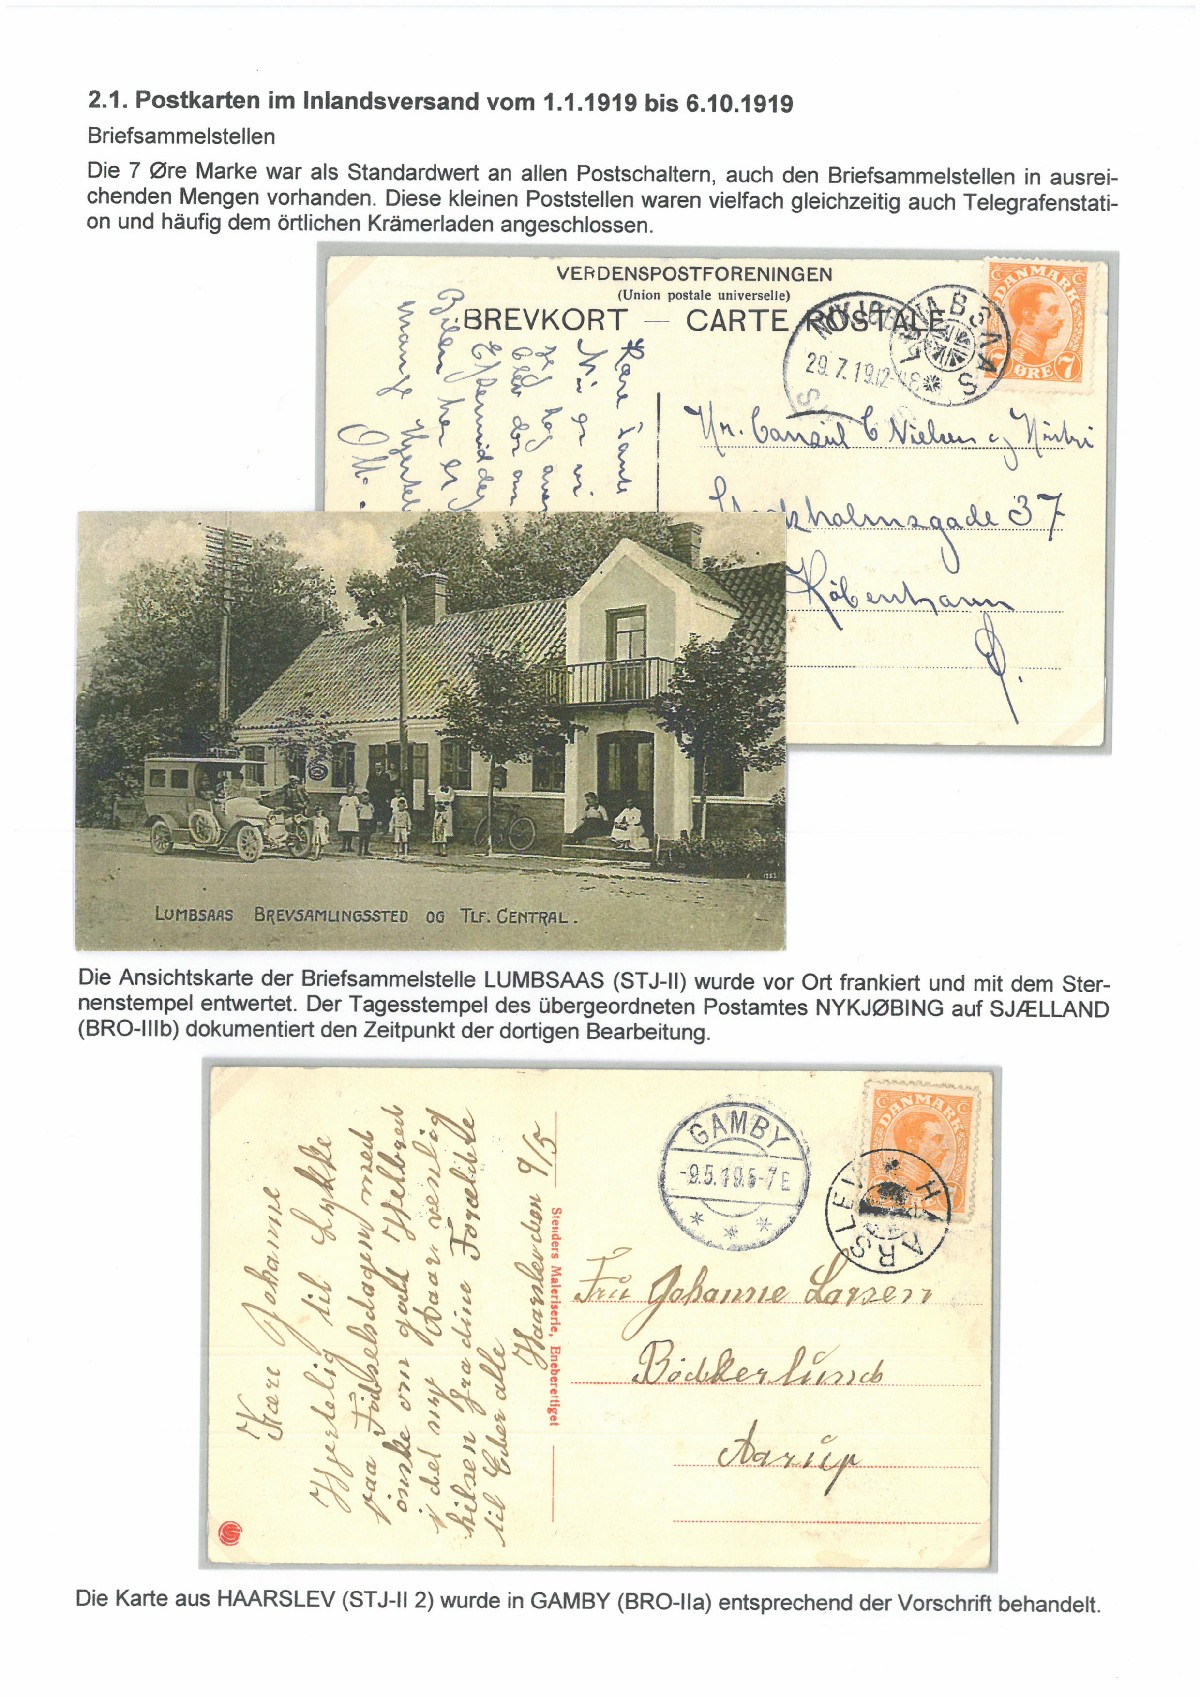 2.1. Postkarten im Inlandsversand vom 1.1.1919 bis 6.10.1919
Briefsammelstellen
Die 7 Øre Marke war als Standardwert an allen Postschaltern, auch den Briefsammelstellen in ausrei-
chenden Mengen vorhanden. Diese kleinen Poststellen waren vielfach gleichzeitig auch Telegrafenstati-
on und häufig dem örtlichen Krämerladen angeschlossen.
VERDENSPOSTFORENINGEN
(Union postale universelle)
BREVKORT — CARTE POSTALE
29.7.19.12-
LUMBSAAS
DANMARK
7 ØRE 7
Kære Tante
Nu er vi
Bilen her er
mange
Hr. Consul C Nielsen og
Stockholmsgade 37
København
Ø.
LUMBSAAS BREVSAMLINGSSTED OG TLF. CENTRAL.
Die Ansichtskarte der Briefsammelstelle LUMBSAAS (STJ-II) wurde vor Ort frankiert und mit dem Ster-
nenstempel entwertet. Der Tagesstempel des übergeordneten Postamtes NYKJØBING auf SJÆLLAND
(BRO-IIIb) dokumentiert den Zeitpunkt der dortigen Bearbeitung.
GAMBY
-9.5.19.6-7E
DANMARK
HAARSLEV
Kære Johanne
Hjertelig til Lykke
paa Fødselsdagen med
ønske om godt Helbred
i det ny Aar venlig
hilsen fra dine Forældre
til Eder alle
Haarslev den 9/5
Stenders Maleriserie, Eneberettiget
Fru Johanne Larsen
Böckkerlund
Aarup
Die Karte aus HAARSLEV (STJ-II 2) wurde in GAMBY (BRO-IIa) entsprechend der Vorschrift behandelt.